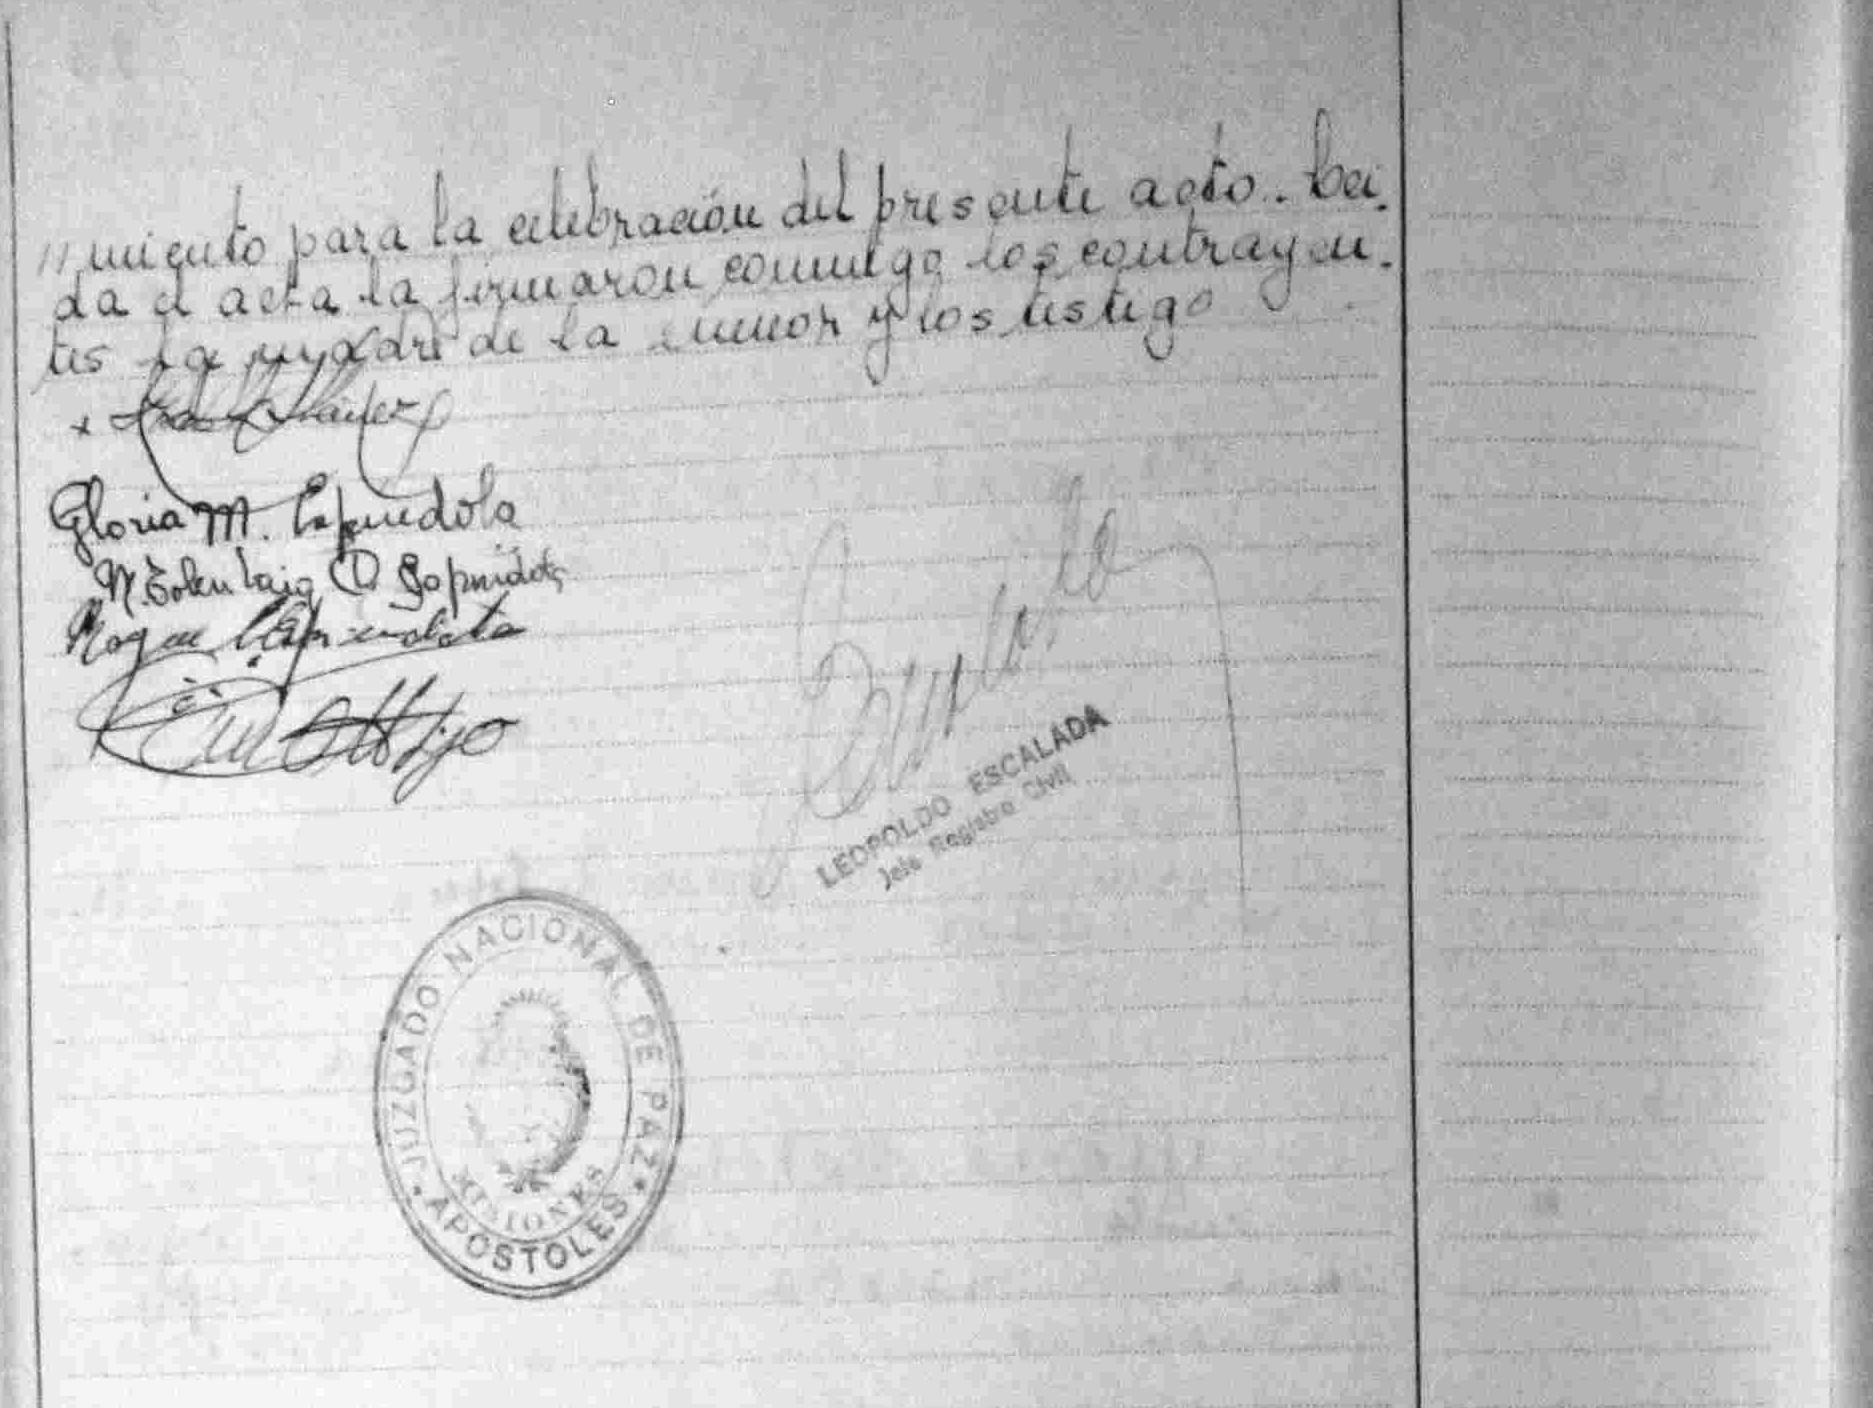 "miento para la celebración del presente acto.. Lei.
da el acta la firmaron conmigo los contrayen.
tes la madre de la menor y los testigo
Gloria M. Espindola
Roque Espindola
LEOPOLDO ESCALADA
Jefe Registro Civil
JUZGADO NACIONAL DE PAZ
MISIONES
APOSTOLES